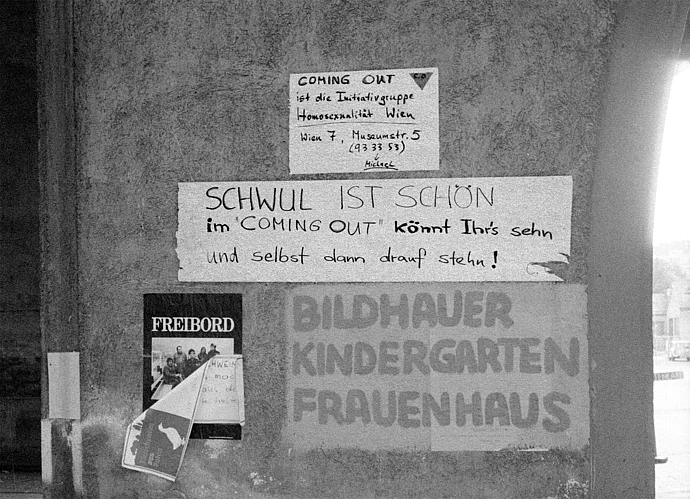 COMING OUT CO
ist die Initiativgruppe
Homosexualität Wien
Wien 7, Museumstr. 5
(93 33 53)
Michael
SCHWUL IST SCHÖN
im "COMING OUT" könnt Ihr's sehn
und selbst dann drauf stehn!
FREIBORD
BILDHAUER
KINDERGARTEN
FRAUENHAUS